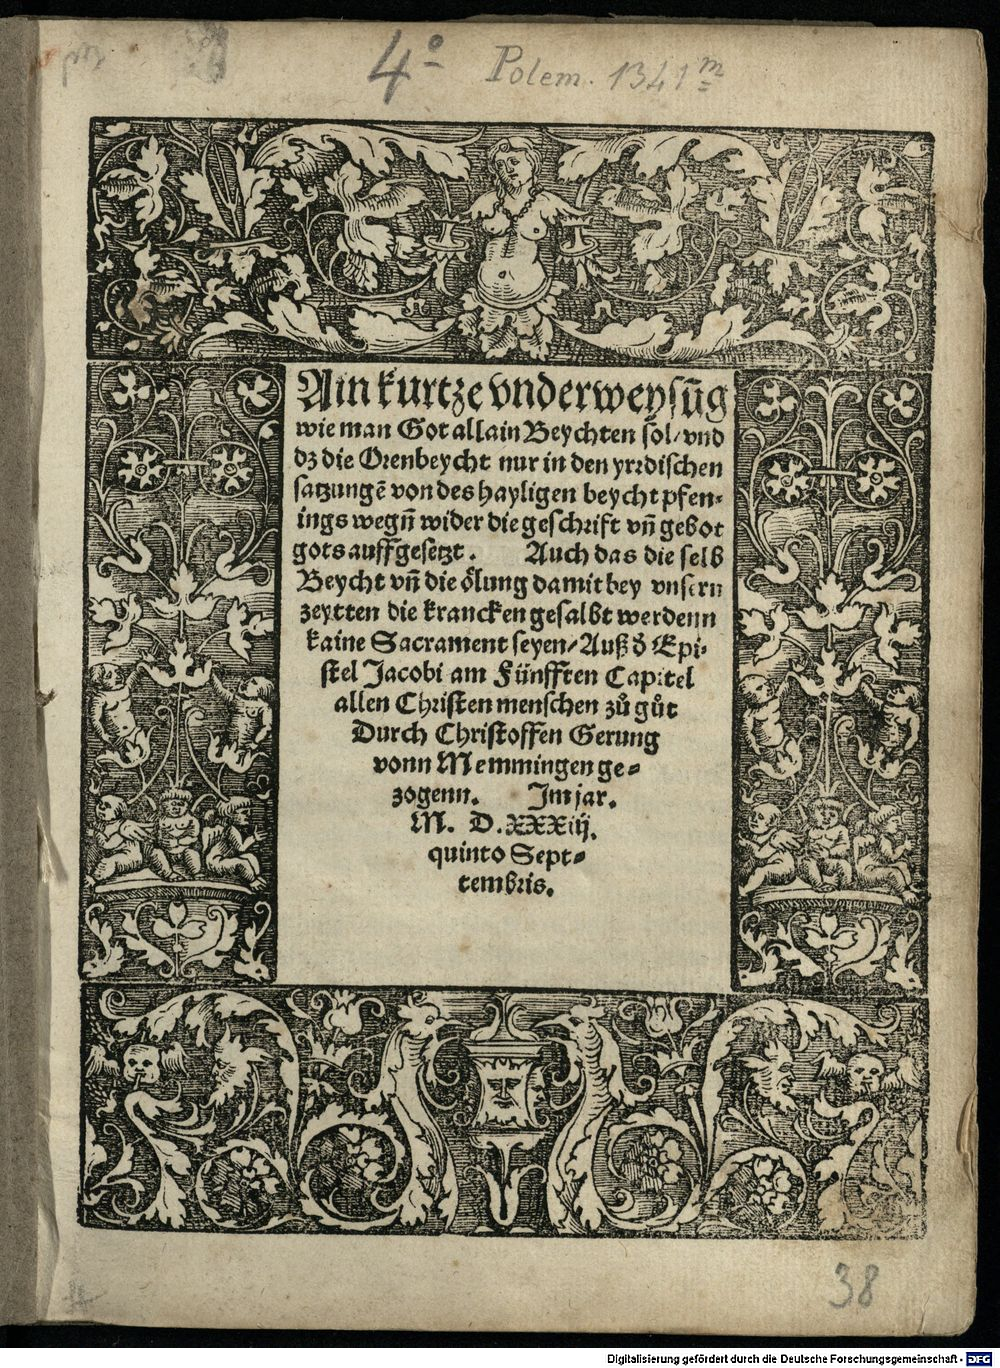 4º Polem. 1341m
Ain kurtze vnderweysũg
wie man Got allain Beychten sol/ vnd
dz die Orenbeycht nur in den yrrdischen
satzungẽ von des hayligen beycht pfen-
ings wegñ wider die geschrift vñ gebot
gots auffgesetzt. Auch das die selb
Beycht vñ die ölung damit bey vnsern
zeytten die krancken gesalbt werdenn
kaine Sacrament seyen/ Auß d̕ Epi-
stel Jacobi am Fünfften Capitel
allen Christen menschen zů gůt
Durch Christoffen Gerung
vonn Memmingen ge-
zogenn. Im jar.
M. D. XXXiij.
quinto Sept-
tembris.
38
Digitalisierung gefördert durch die Deutsche Forschungsgemeinschaft - DFG